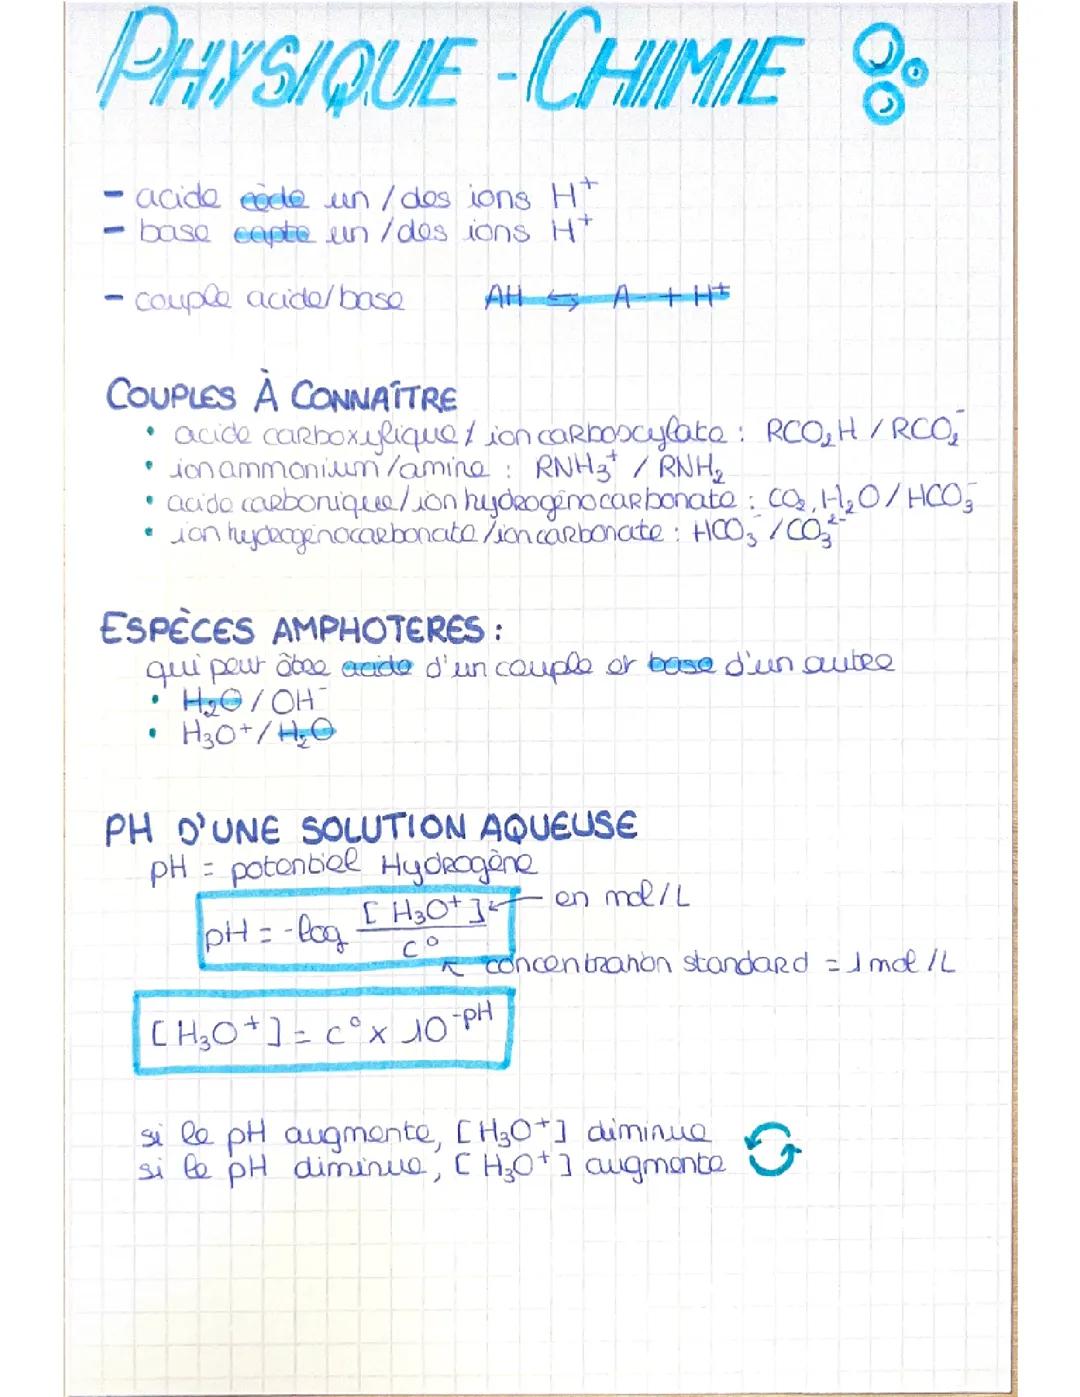 PHYSIQUE - CHIMIE
- acide cède un / des ions H⁺
- base capte un / des ions H⁺
- couple acide/base AH ⇆ A- + H⁺
COUPLES À CONNAÎTRE
• acide carboxylique / ion carboxylate : RCO₂H / RCO₂⁻
• ion ammonium / amine : RNH₃⁺ / RNH₂
• acide carbonique / ion hydrogénocarbonate : CO₂, H₂O / HCO₃⁻
• ion hydrogénocarbonate / ion carbonate : HCO₃⁻ / CO₃²⁻
ESPÈCES AMPHOTERES :
qui peut être acide d'un couple et base d'un autre
• H₂O / OH⁻
• H₃O⁺ / H₂O
PH D'UNE SOLUTION AQUEUSE
pH = potentiel Hydrogène
pH = -log [H₃O⁺] / c° en mol/L
concentration standard = 1 mol/L
[H₃O⁺] = c° × 10⁻ᵖᴴ
si le pH augmente, [H₃O⁺] diminue
si le pH diminue, [H₃O⁺] augmente